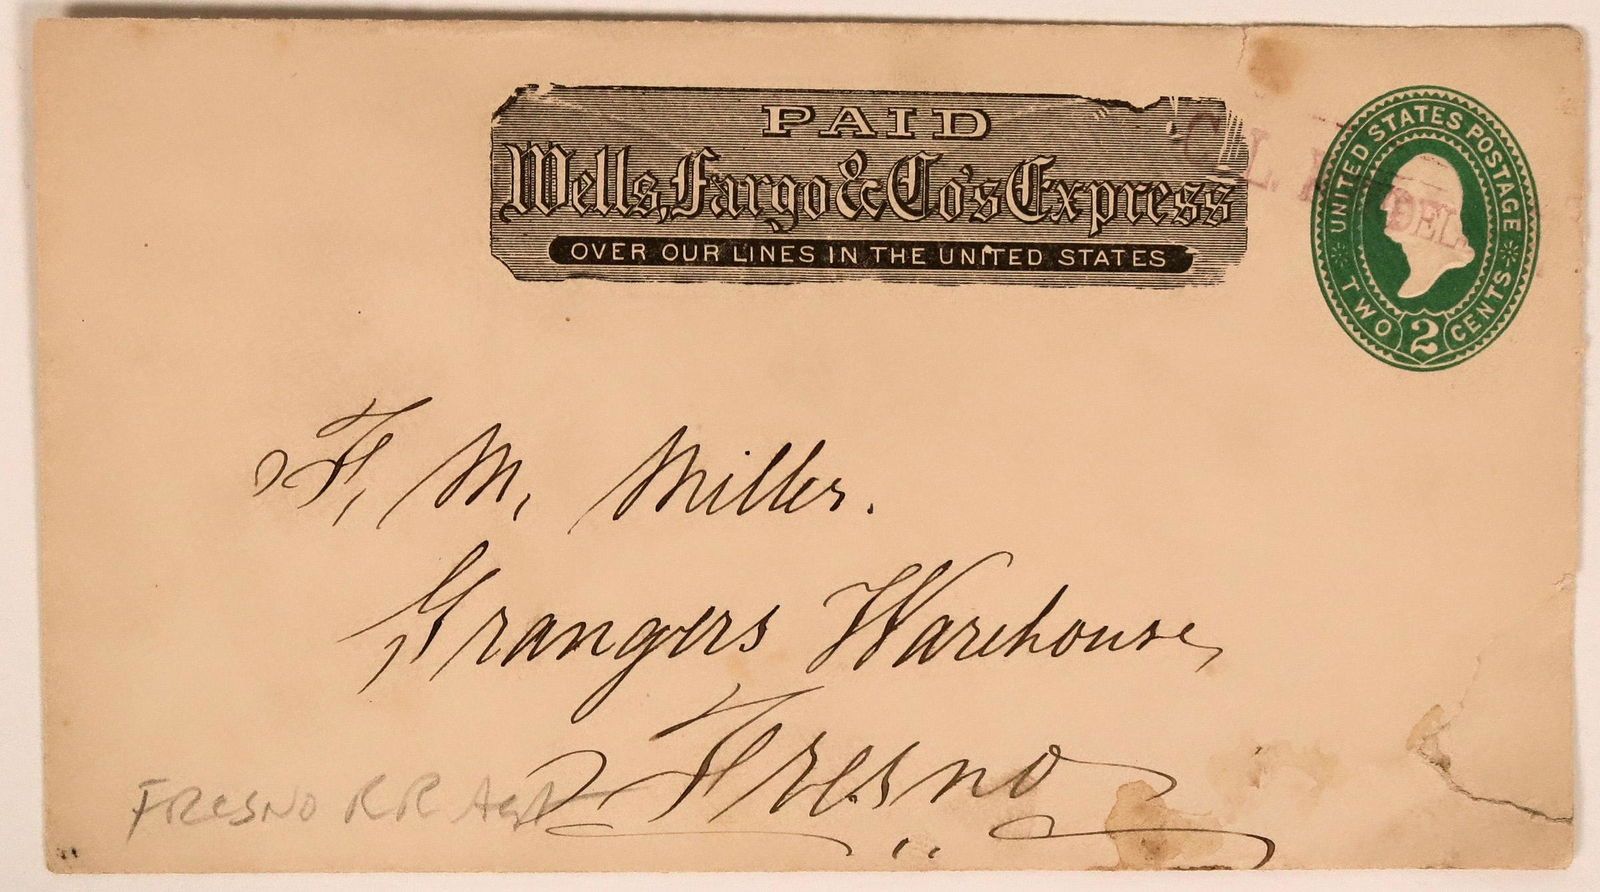 PAID
Wells, Fargo & Co's Express
OVER OUR LINES IN THE UNITED STATES
UNITED STATES POSTAGE
TWO 2 CENTS
DEL
F. M. Miller.
Grangers Warehouse,
Fresno
FRESNO RR Agt